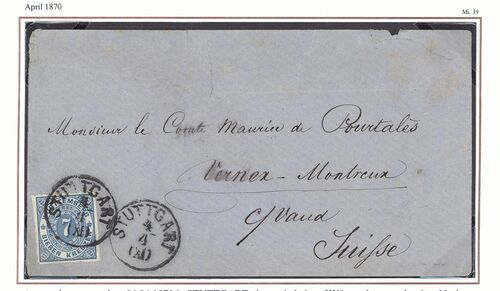 April 1870
Mi. 39
Monsieur le Comte Maurice de Pourtalès
Vernex-Montreux
Vaud
Suisse
STUTTGART
4
4
XI
7
SIEBEN KREUZER
STUTTGART
4
4
XI